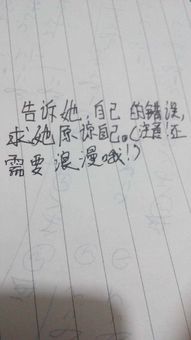 告诉她,自己的错误,
求她原谅自己。(注意还
需要浪漫哦!)